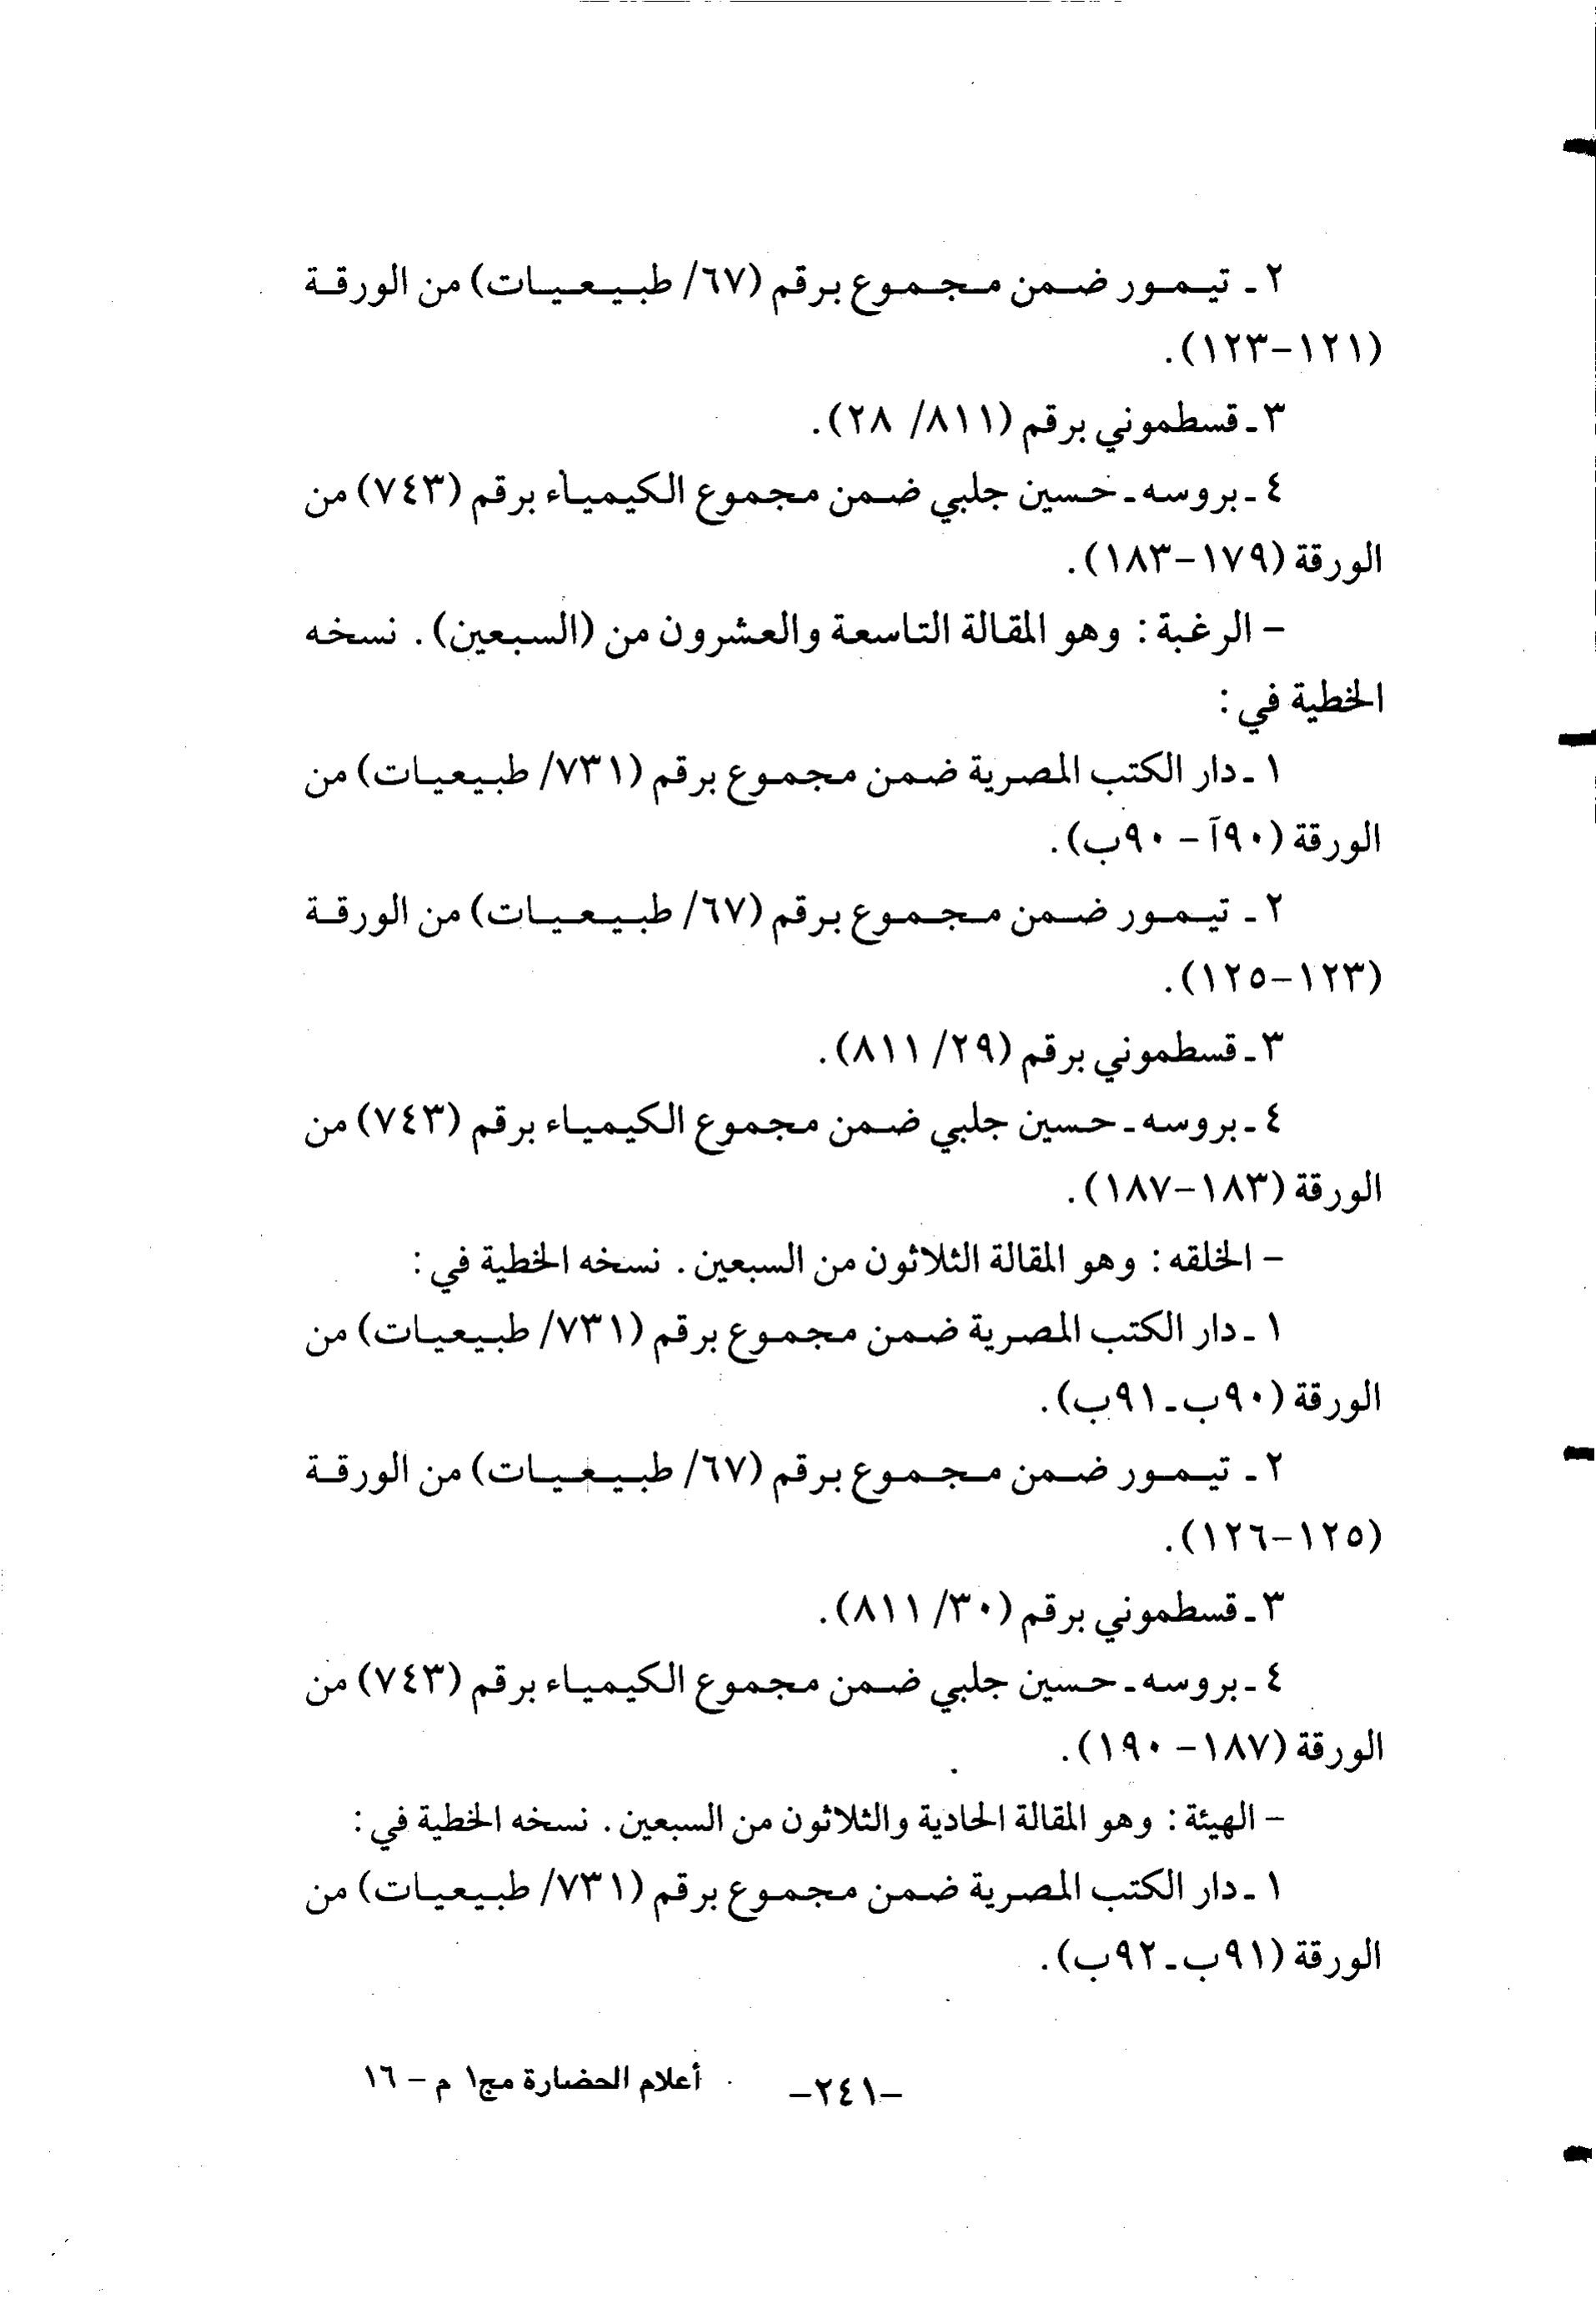 ٢ ـ تيمور ضمن مجموع برقم (٦٧/ طبيعيات) من الورقة
(١٢١–١٢٣).
٣ ـ قسطموني برقم (٨١١/ ٢٨).
٤ ـ بروسه ـ حسين جلبي ضمن مجموع الكيمياء برقم (٧٤٣) من
الورقة (١٧٩–١٨٣).
– الرغبة : وهو المقالة التاسعة والعشرون من (السبعين). نسخه
الخطية في :
١ ـ دار الكتب المصرية ضمن مجموع برقم (٧٣١/ طبيعيات) من
الورقة (٩٠آ – ٩٠ب).
٢ ـ تيمور ضمن مجموع برقم (٦٧/ طبيعيات) من الورقة
(١٢٣–١٢٥).
٣ ـ قسطموني برقم (٢٩/ ٨١١).
٤ ـ بروسه ـ حسين جلبي ضمن مجموع الكيمياء برقم (٧٤٣) من
الورقة (١٨٣–١٨٧).
– الخلقه : وهو المقالة الثلاثون من السبعين. نسخه الخطية في :
١ ـ دار الكتب المصرية ضمن مجموع برقم (٧٣١/ طبيعيات) من
الورقة (٩٠ب ـ ٩١ب).
٢ ـ تيمور ضمن مجموع برقم (٦٧/ طبيعيات) من الورقة
(١٢٥–١٢٦).
٣ ـ قسطموني برقم (٣٠/ ٨١١).
٤ ـ بروسه ـ حسين جلبي ضمن مجموع الكيمياء برقم (٧٤٣) من
الورقة (١٨٧– ١٩٠).
– الهيئة : وهو المقالة الحادية والثلاثون من السبعين. نسخه الخطية في :
١ ـ دار الكتب المصرية ضمن مجموع برقم (٧٣١/ طبيعيات) من
الورقة (٩١ب ـ ٩٢ب).
–٢٤١– أعلام الحضارة مج١ م – ١٦